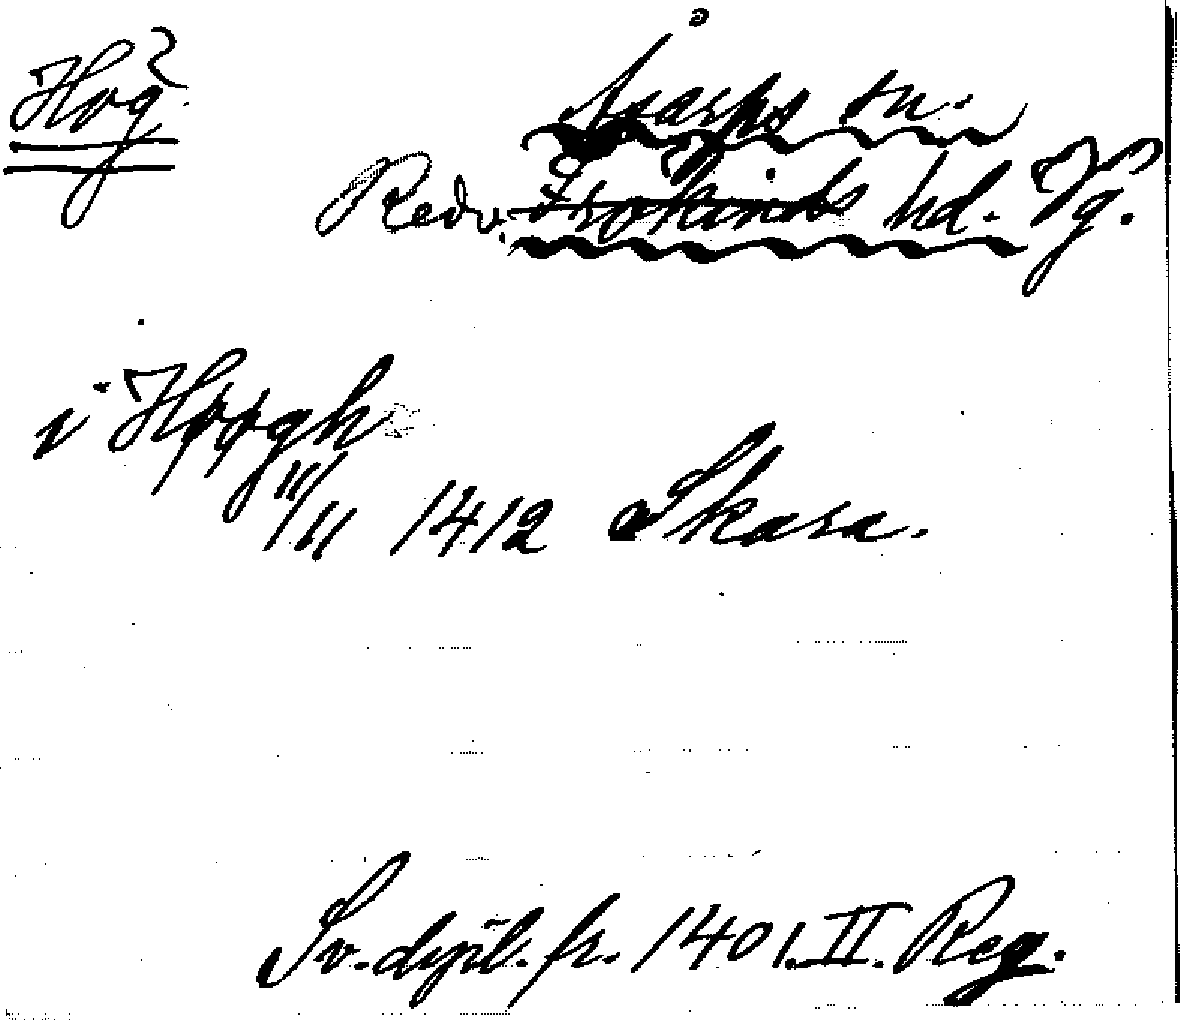 Hög
Åsarps sn.
Redv. Frökinds hd. Vg.
i Høøgh
11/11 1412 Skara.
Sv. dipl. fr. 1401. II. Reg.